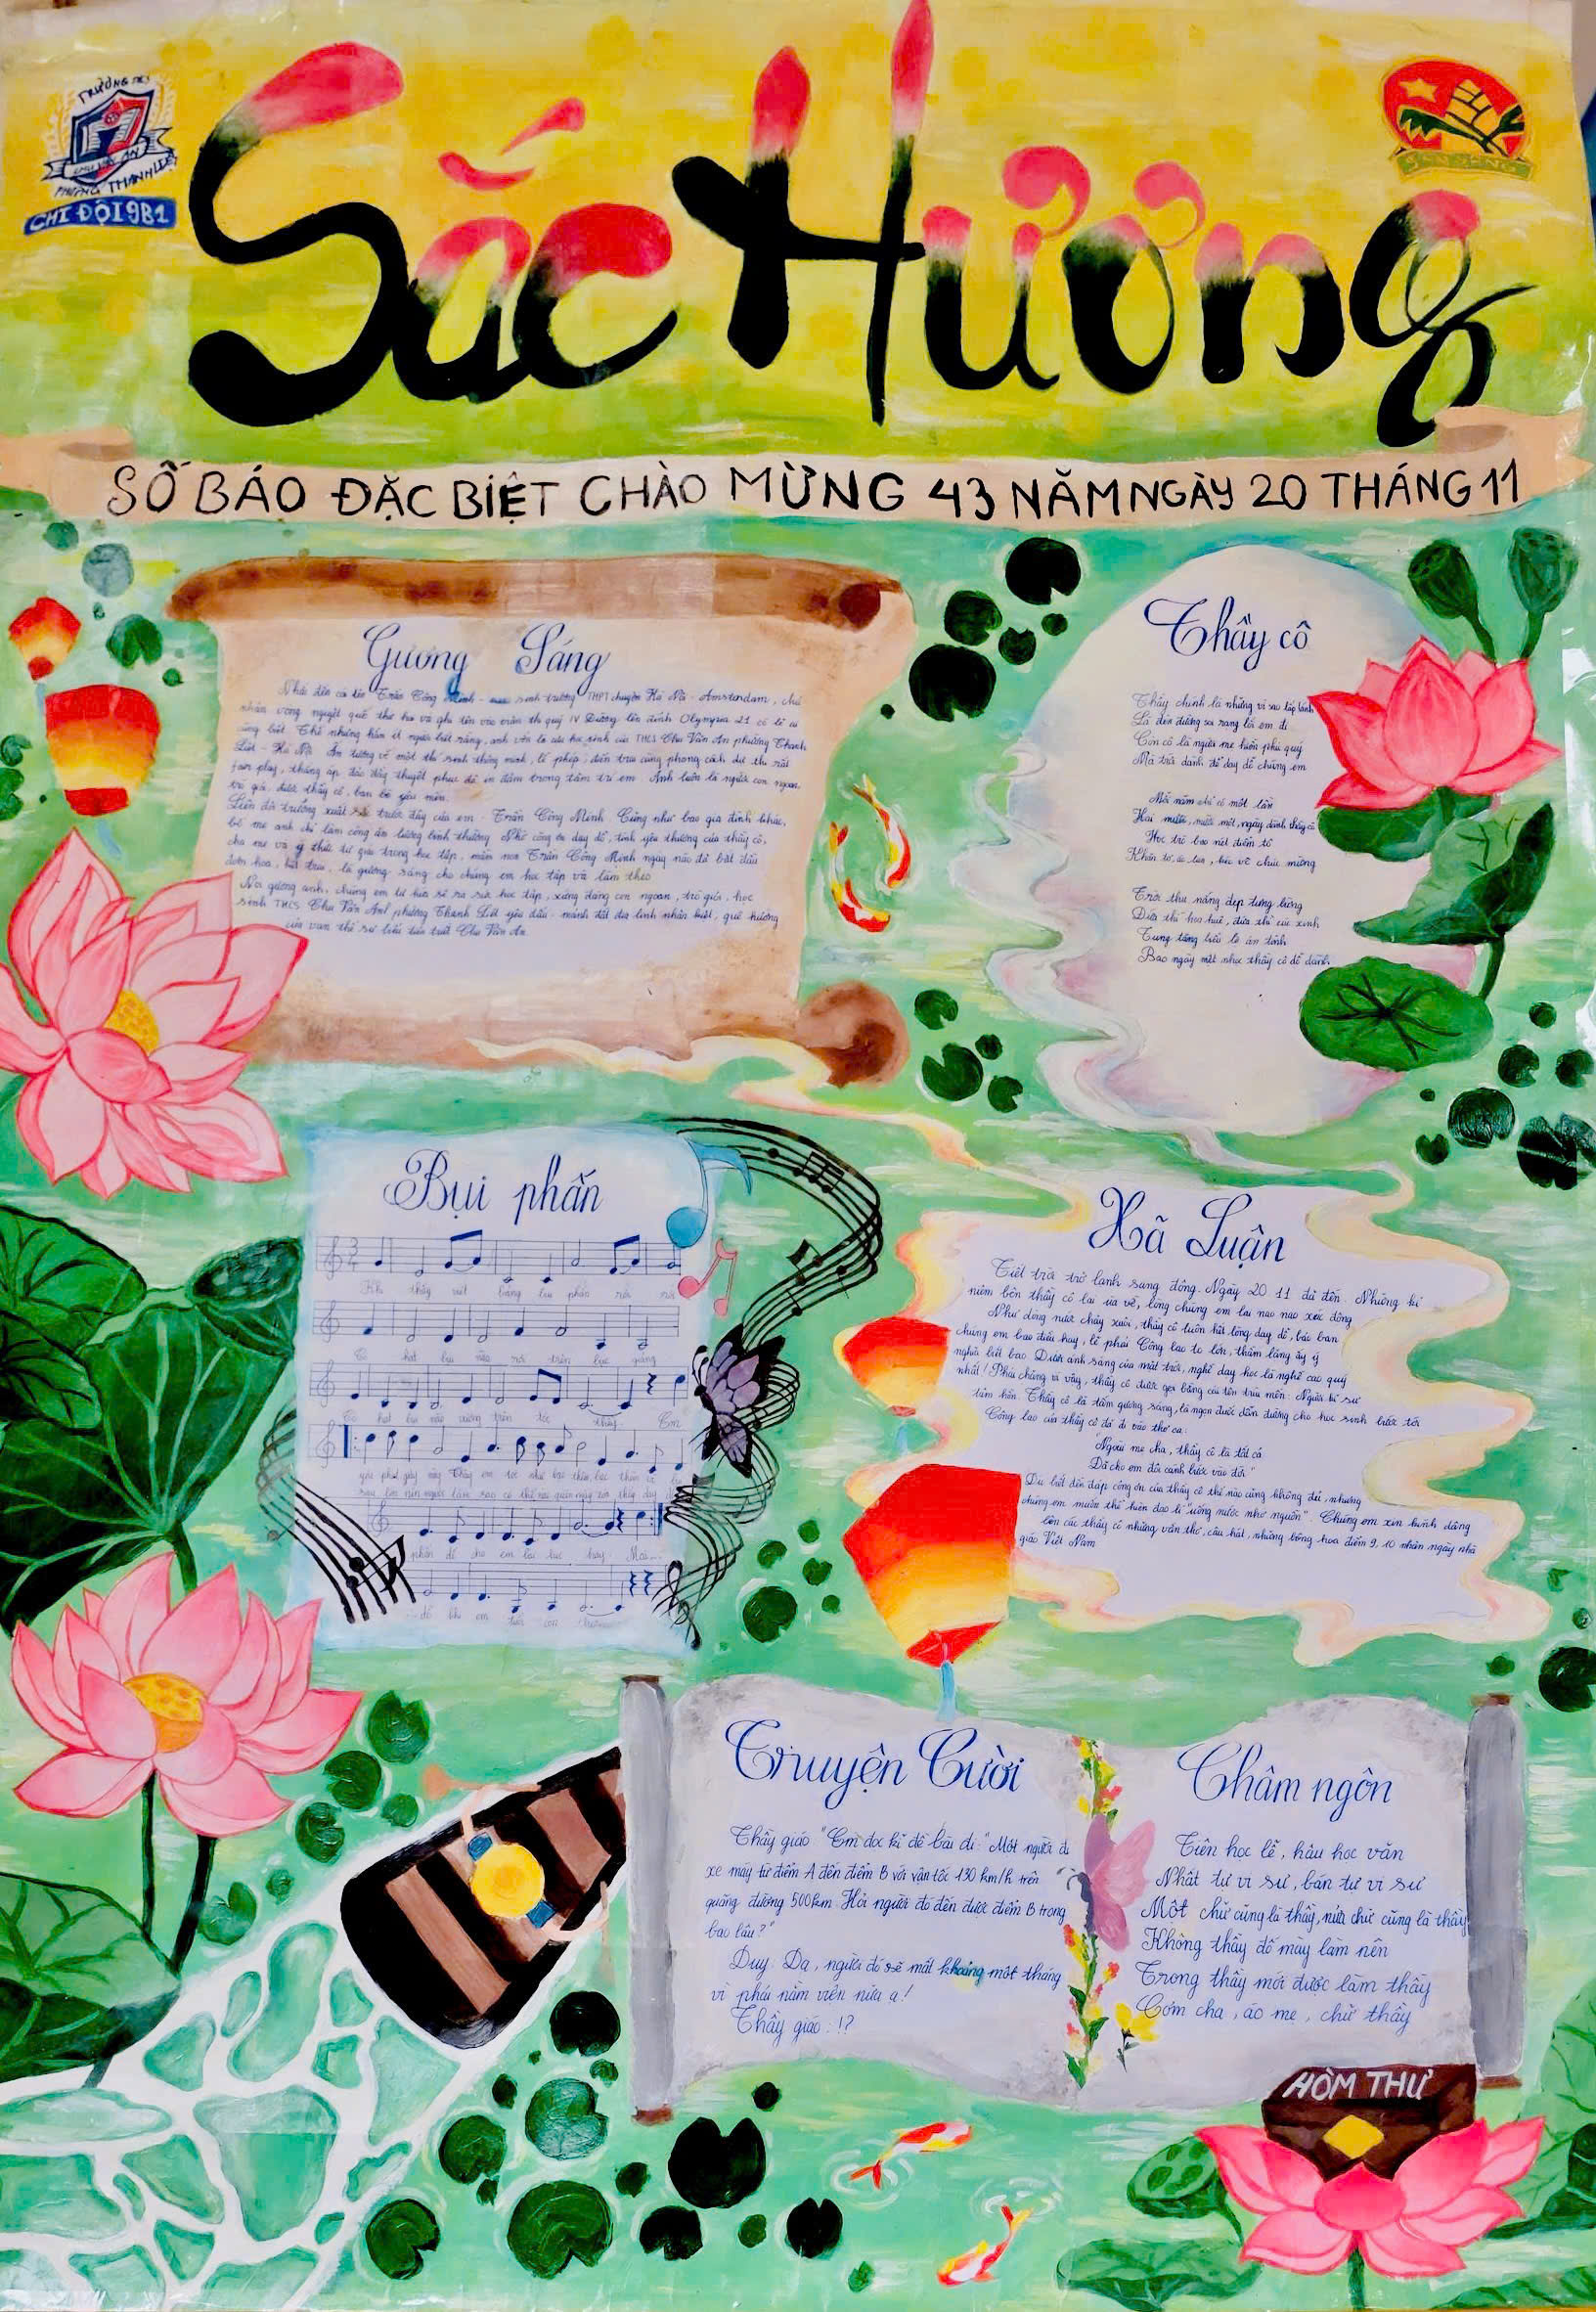 TRƯỜNG THCS
CHU VĂN AN
PHƯỜNG THANH LIỆT
CHI ĐỘI 9B1
SẴN SÀNG
Sắc Hương
SỐ BÁO ĐẶC BIỆT CHÀO MỪNG 43 NĂM NGÀY 20 THÁNG 11
Gương Sáng
Nhắc đến cái tên Trần Công Minh - sinh trường THPT chuyên Hà Nội - Amsterdam, chủ
nhân vòng nguyệt quế thứ ba và ghi tên vào trận thi quý IV Đường lên đỉnh Olympia 21 có lẽ ai
cũng biết. Thế nhưng hẳn ít người biết rằng, anh vốn là cựu học sinh của THCS Chu Văn An phường Thanh
Liệt - Hà Nội. Ấn tượng về một thí sinh thông minh, lễ phép, điển trai cùng phong cách dự thi rất
fair play, tháng áp đảo đầy thuyết phục đã in đậm trong tâm trí em. Anh luôn là người con ngoan,
trò giỏi, được thầy cô, bạn bè yêu mến.
Liên đội trưởng xuất sắc trước đây của em - Trần Công Minh. Cũng như bao gia đình khác,
bố mẹ anh chỉ làm công ăn lương bình thường. Nhờ công ơn dạy dỗ, tình yêu thương của thầy cô,
cha mẹ và ý thức tự giác trong học tập, mầm non Trần Công Minh ngày nào đã bắt đầu
đơm hoa, kết trái, là gương sáng cho chúng em học tập và làm theo.
Noi gương anh, chúng em tự hứa sẽ ra sức học tập, xứng đáng con ngoan, trò giỏi, học
sinh THCS Chu Văn An phường Thanh Liệt yêu dấu - mảnh đất địa linh nhân kiệt, quê hương
của vạn thế sư biểu Chu Văn An.
Thầy cô
Thầy chính là những vì sao lấp lánh
Là đèn đường soi rạng lối em đi
Còn cô là người mẹ hiền phú quý
Mà trời dành để dạy dỗ chúng em
Mỗi năm chỉ có một lần
Hai mươi, mười một, ngày dành thầy cô
Học trò bao nét điểm tô
Khăn tơ, áo lụa, kéo về chúc mừng
Trời thu nắng đẹp tưng bừng
Đứa thì hoa huệ, đứa thì cúc xinh
Tung tăng biểu lộ ân tình
Bao ngày mệt nhọc thầy cô dỗ dành
Bụi phấn
Khi thầy viết bảng bụi phấn rơi rơi
Có hạt bụi nào rơi trên bục giảng
Có hạt bụi nào vương trên tóc thầy Em
yêu phút giây này Thầy em tóc như bạc thêm, bạc thêm vì bụi
sau lớn nên người làm sao có thể nào quên ngày xưa thầy dạy
phấn để cho em bài học hay. Mai...
dỗ khi em tuổi còn thơ...
Xã Luận
Tiết trời trở lạnh sang đông. Ngày 20 11 đã đến. Những kỉ
niệm bên thầy cô lại ùa về, lòng chúng em lại nao nao xúc động
Như dòng nước chảy xuôi, thầy cô luôn hết lòng dạy dỗ, bảo ban
chúng em bao điều hay, lẽ phải. Công lao to lớn, thầm lặng ấy ý
nghĩa biết bao. Dưới ánh sáng của mặt trời, nghề dạy học là nghề cao quý
nhất! Phải chăng vì vậy, thầy cô được gọi bằng cái tên trìu mến: Người kĩ sư
tâm hồn. Thầy cô là tấm gương sáng, là ngọn đuốc dẫn đường cho học sinh bước tới
Công lao của thầy cô đã đi vào thơ ca:
"Ngoài mẹ cha, thầy cô là tất cả
Đã cho em đôi cánh bước vào đời"
Dù biết đền đáp công ơn của thầy cô thế nào cũng không đủ, nhưng
chúng em muốn thể hiện đạo lí "uống nước nhớ nguồn". Chúng em xin kính dâng
lên các thầy cô những vần thơ, câu hát, những bông hoa điểm 9, 10 nhân ngày nhà
giáo Việt Nam
Truyện Cười
Thầy giáo "Em đọc kĩ đề bài đi: "Một người đi
xe máy từ điểm A đến điểm B với vận tốc 130 km/h trên
quãng đường 500km. Hỏi người đó đến được điểm B trong
bao lâu?"
Duy: Dạ, người đó sẽ mất khoảng một tháng
vì phải nằm viện nữa ạ!
Thầy giáo: !?
Châm ngôn
Tiên học lễ, hậu học văn
Nhất tự vi sư, bán tự vi sư
Một chữ cũng là thầy, nửa chữ cũng là thầy
Không thầy đố mày làm nên
Trọng thầy mới được làm thầy
Cơm cha, áo mẹ, chữ thầy
HÒM THƯ